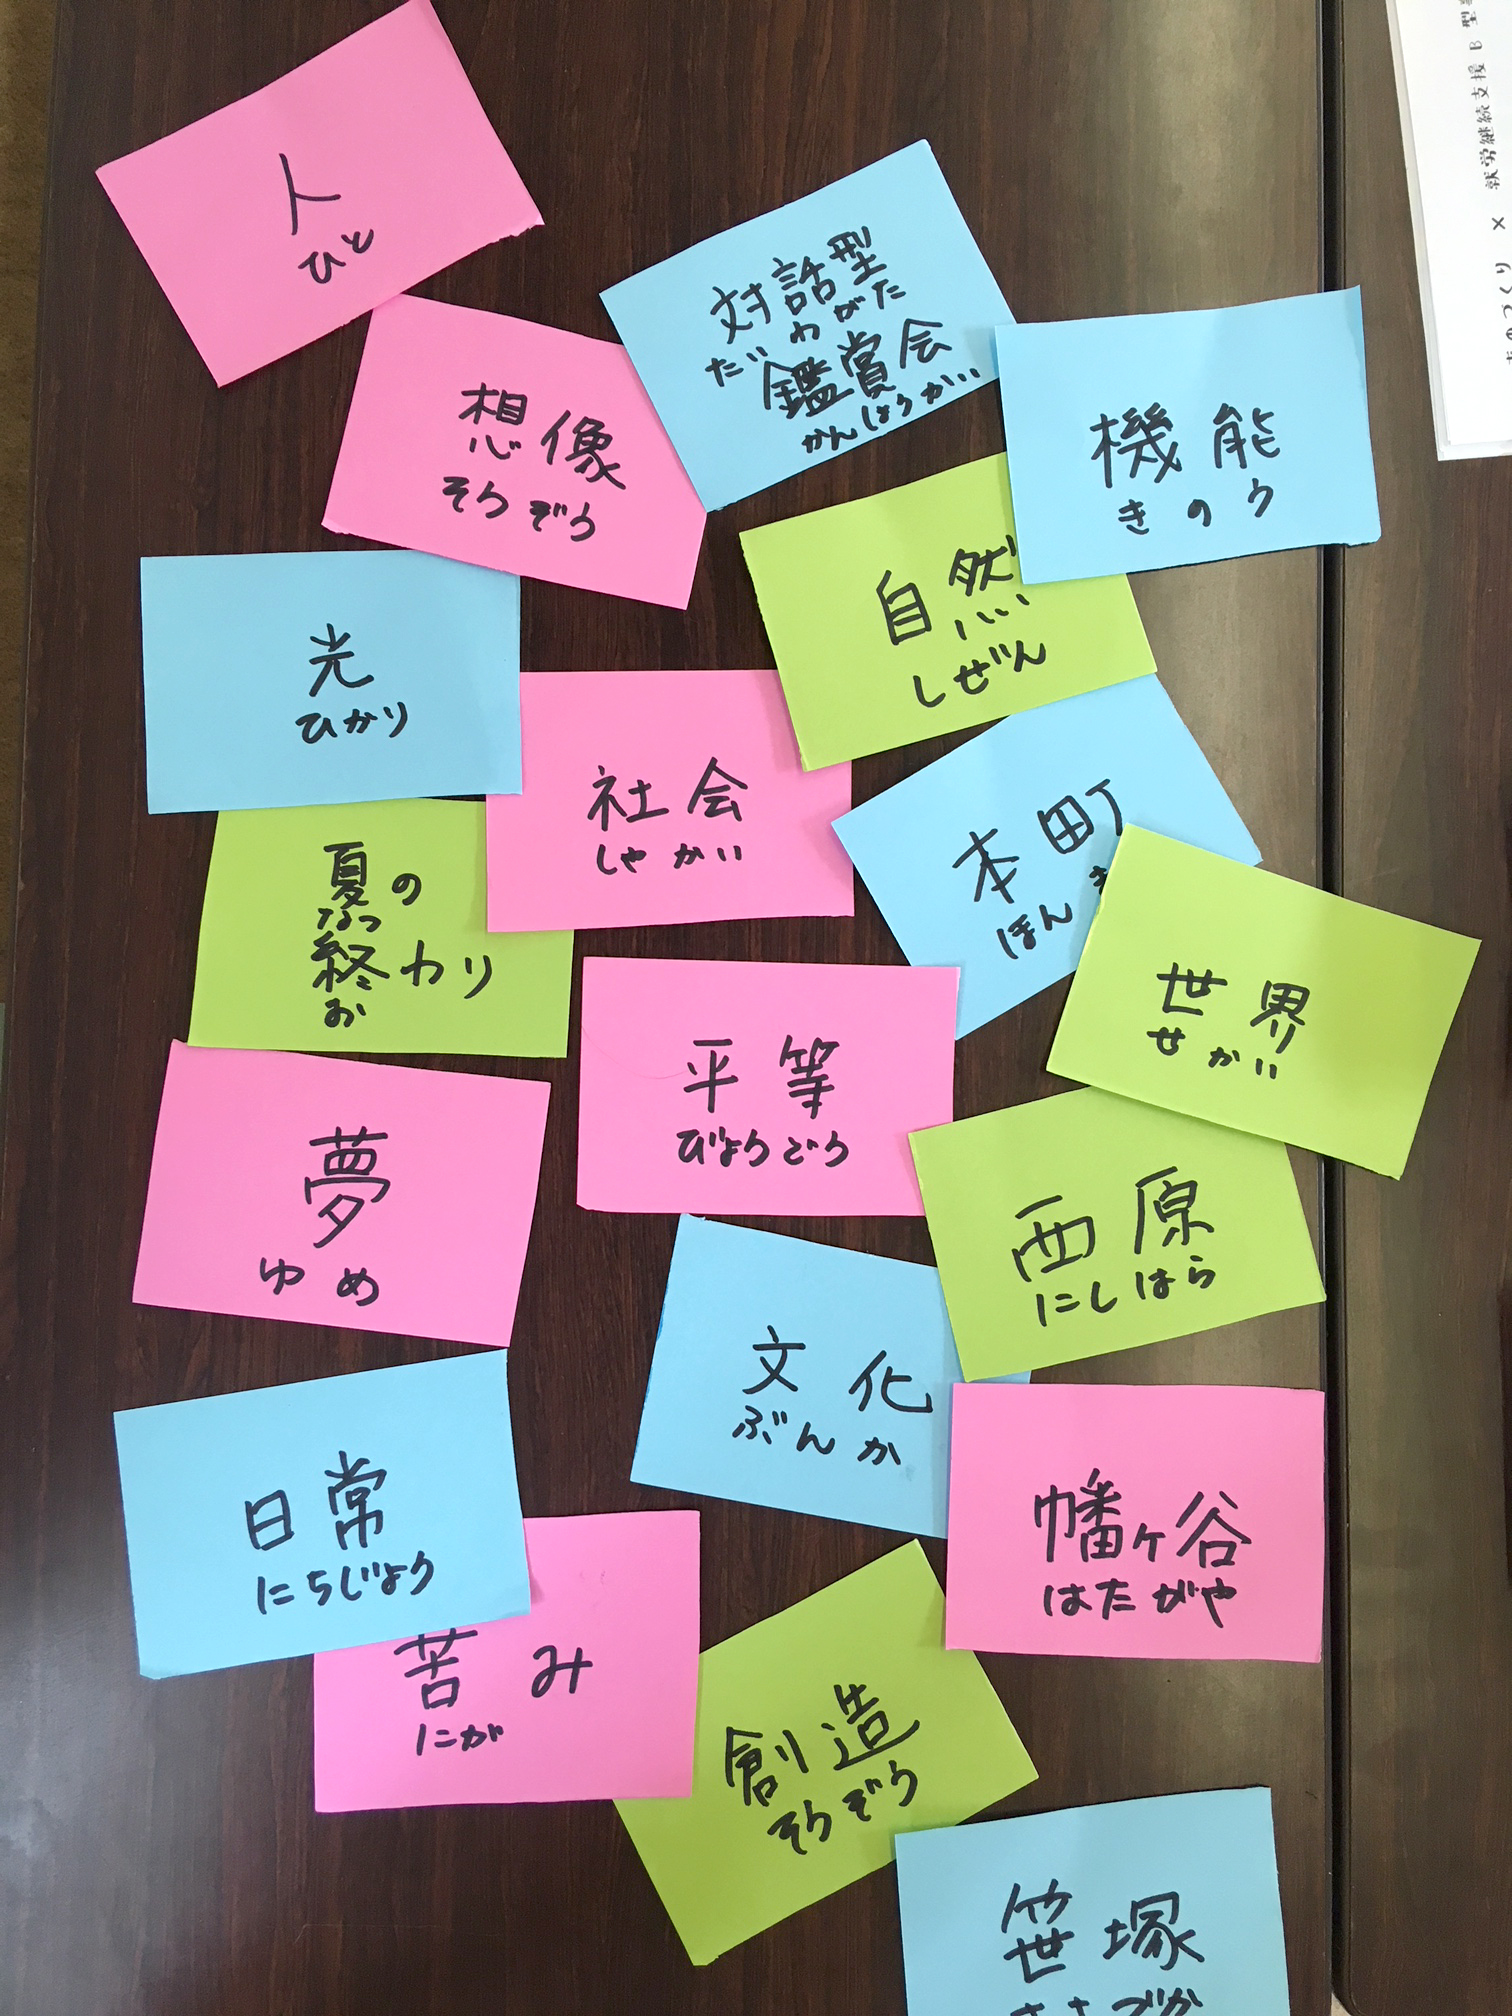 人
ひと
対話型
だいわがた
鑑賞会
かんしょうかい
想像
そうぞう
機能
きのう
自然
しぜん
光
ひかり
社会
しゃかい
本町
ほん
夏の
なつ
終わり
お
世界
せかい
平等
びょうどう
夢
ゆめ
西原
にしはら
文化
ぶんか
日常
にちじょう
幡ヶ谷
はたがや
苦み
にが
創造
そうぞう
笹塚
ささづか
就労継続支援B型
×